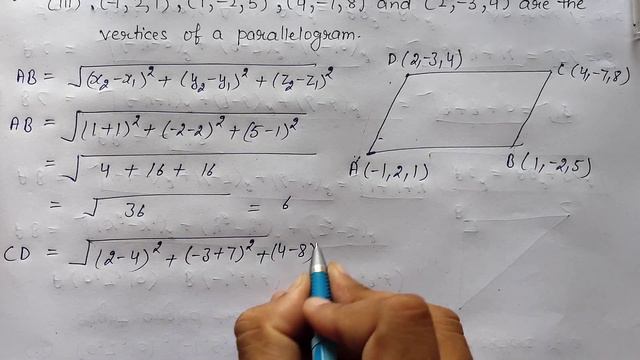 (iii), (-1, 2, 1), (1, -2, 5), (4, -7, 8) and (2, -3, 4) are the
vertices of a parallelogram.
AB = √(x₂-x₁)² + (y₂-y₁)² + (z₂-z₁)²
AB = √(1+1)² + (-2-2)² + (5-1)²
= √4 + 16 + 16
= √36 = 6
CD = √(2-4)² + (-3+7)² + (4-8)
D(2,-3,4)
C(4,-7,8)
A(-1,2,1)
B(1,-2,5)